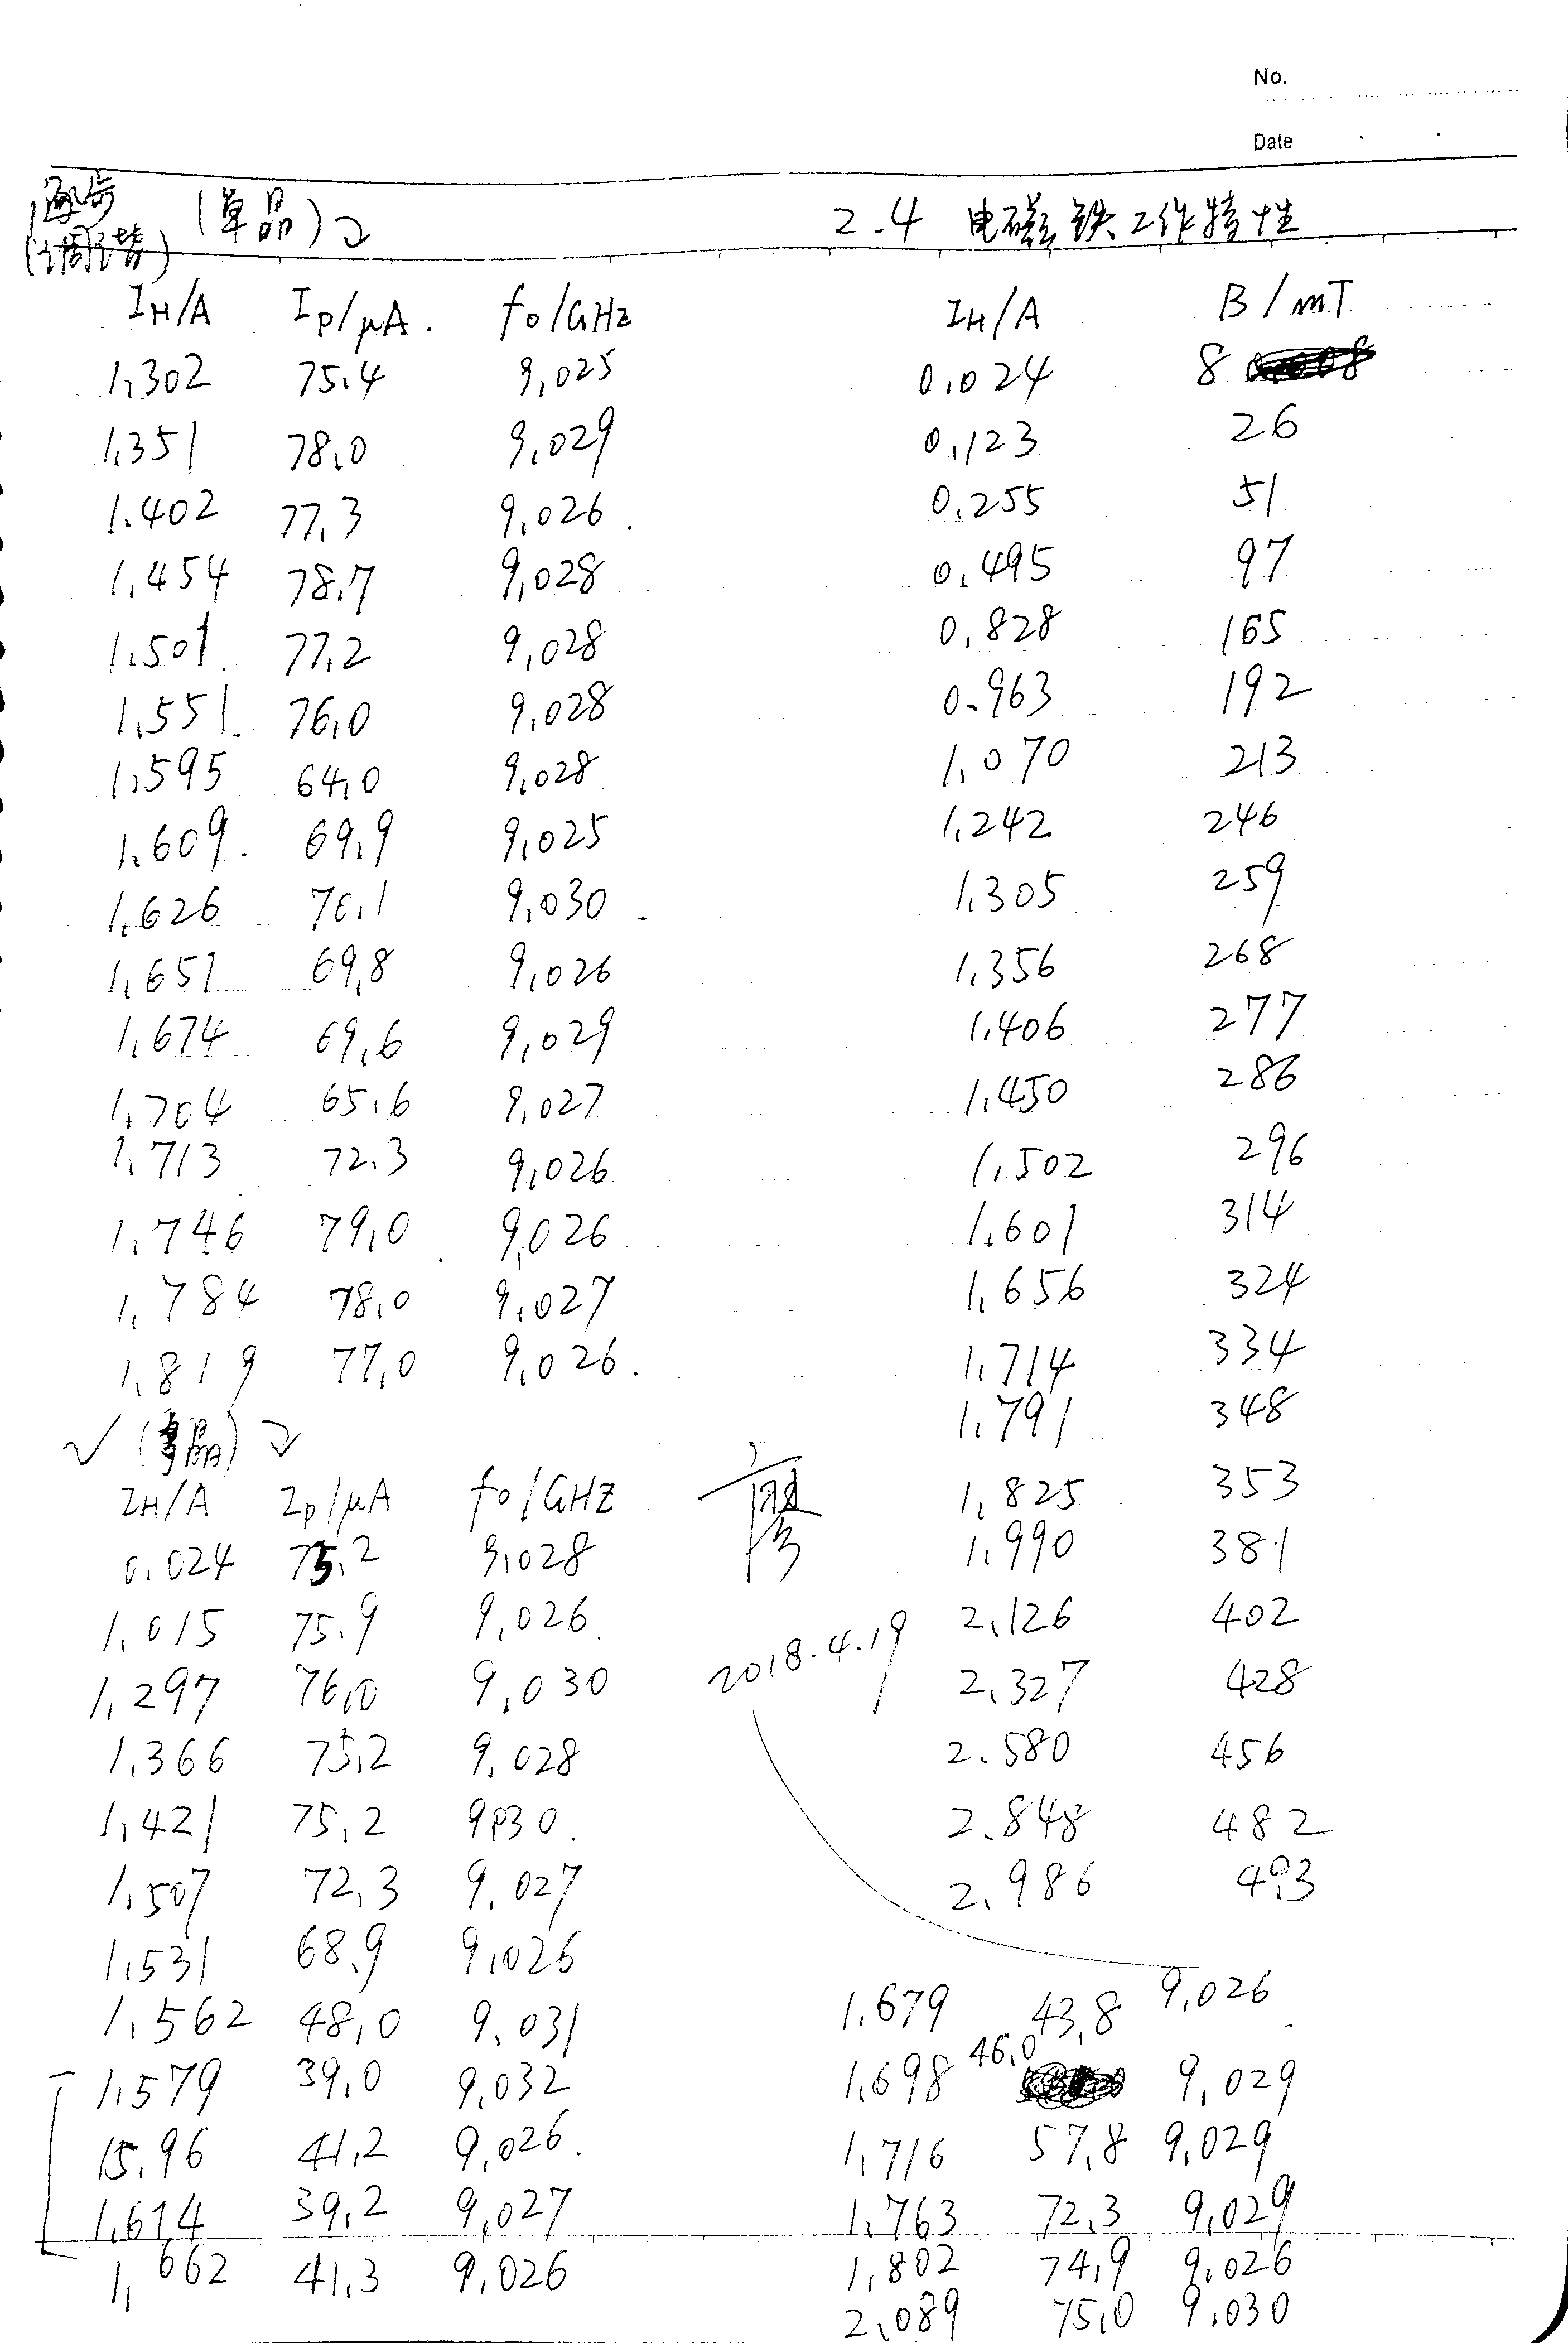 No.
Date
逐点
调谐
(单晶)
IH/A IP/μA. f0/GHz
1.302 75.4 9.025
1.351 78.0 9.029
1.402 77.3 9.026.
1.454 78.7 9.028
1.501 77.2 9.028
1.551. 76.0 9.028
1.595 64.0 9.028
1.609. 69.9 9.025
1.626 70.1 9.030
1.651 69.8 9.026
1.674 69.6 9.029
1.704 65.6 9.027
1.713 72.3 9.026
1.746 79.0 9.026
1.784 78.0 9.027
1.819 77.0 9.026.
√ (多晶)
IH/A IP/μA f0/GHZ
0.024 75.2 9.028
1.015 75.9 9.026.
1.297 76.0 9.030
1.366 75.2 9.028
1.421 75.2 9.030.
1.507 72.3 9.027
1.531 68.9 9.026
1.562 48.0 9.031
1.579 39.0 9.032
15.96 41.2 9.026.
1.614 39.2 9.027
1.662 41.3 9.026
2.4 电磁铁工作特性
IH/A B/mT
0.024 8
0.123 26
0.255 51
0.495 97
0.828 165
0.963 192
1.070 213
1.242 246
1.305 259
1.356 268
1.406 277
1.450 286
1.502 296
1.601 314
1.656 324
1.714 334
1.791 348
1.825 353
1.990 381
2.126 402
2.327 428
2.580 456
2.848 482
2.986 493
2018.4.19
1.679 43.8 9.026
1.698 46.0 9.029
1.716 57.8 9.029
1.763 72.3 9.029
1.802 74.9 9.026
2.089 75.0 9.030